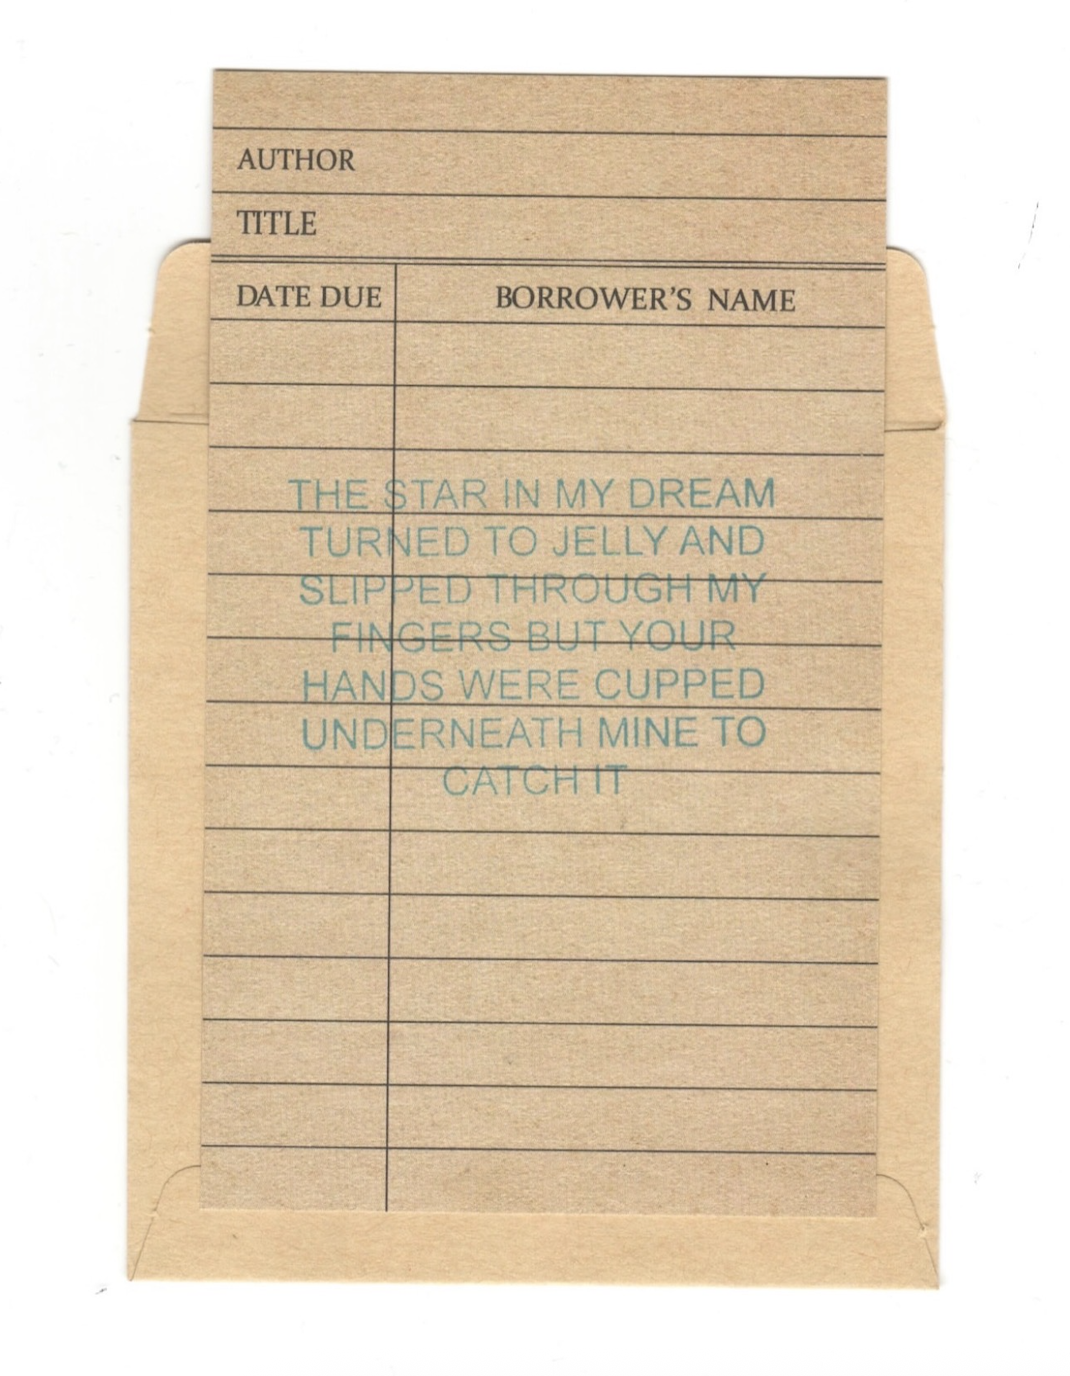 AUTHOR
TITLE
DATE DUE BORROWER'S NAME
THE STAR IN MY DREAM
TURNED TO JELLY AND
SLIPPED THROUGH MY
FINGERS BUT YOUR
HANDS WERE CUPPED
UNDERNEATH MINE TO
CATCH IT